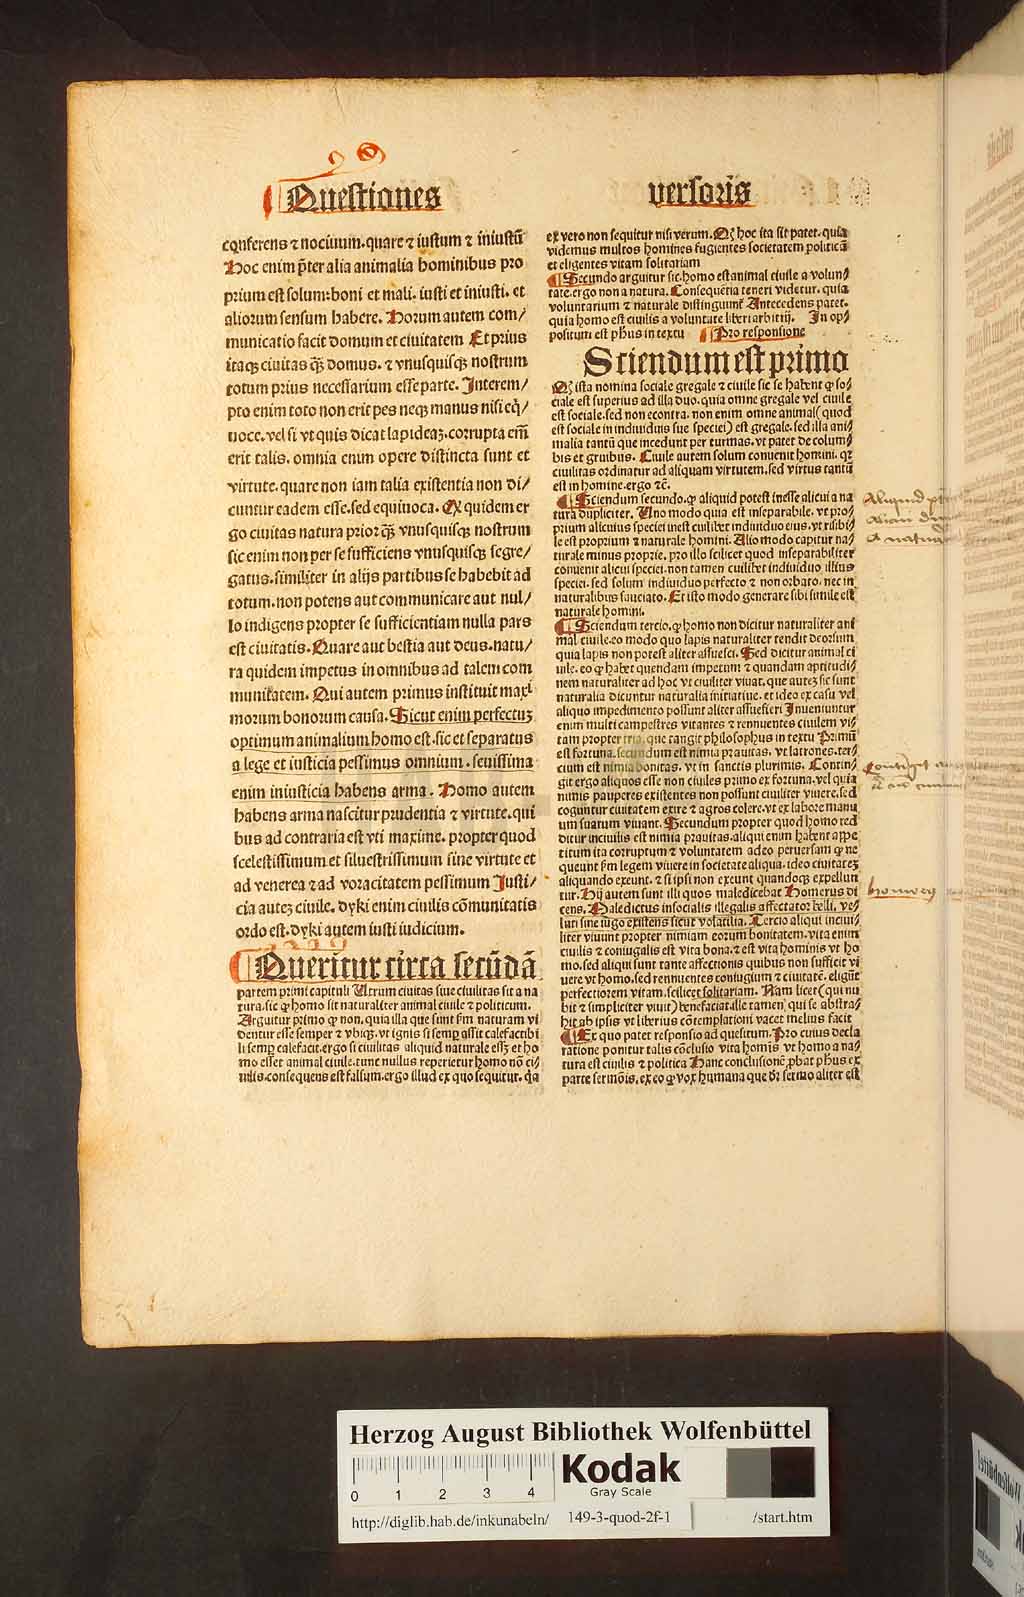 Questiones versoris
conferens ⁊ nociuum. quare ⁊ iustum ⁊ iniustũ
Hoc enim p̃ter alia animalia hominibus pro
prium est solum: boni et mali. iusti et iniusti. et
aliorum sensum habere. Horum autem com/
municatio facit domum et ciuitatem Et prius
itaqꝫ ciuitas q̃ꝫ domus. ⁊ vnusquisqꝫ nostrum
totum prius necessarium esse parte. Interem/
pto enim toto non erit pes neqꝫ manus nisi eq̃/
uoce. vel si vt quis dicat lapideaꝫ. corrupta em̃
erit talis. omnia enim opere distincta sunt et
virtute. quare non iam talia existentia non di/
cuntur eadem esse. sed equinoca. Ex quidem er
go ciuitas natura prior q̃ꝫ vnusquisqꝫ nostrum
sic enim non per se sufficiens vnusquisqꝫ segre/
gatus. similiter in alijs partibus se habebit ad
totum. non potens aut communicare aut nul/
lo indigens propter se sufficientiam nulla pars
est ciuitatis. Quare aut bestia aut deus. natu/
ra quidem impetus in omnibus ad talem com
munitatem. Qui autem primus instituit maxi
morum bonorum causa. Sicut enim perfectuꝫ
optimum animalium homo est. sic et separatus
a lege et iusticia pessimus omnium. seuissima
enim iniusticia habens arma. Homo autem
habens arma nascitur prudentia ⁊ virtute. qui
bus ad contraria est vti maxime. propter quod
scelestissimum et siluestrissimum sine virtute et
ad venerea ⁊ ad voracitatem pessimum Justi/
cia auteꝫ ciuile. dyki enim ciuilis cõmunitatis
ordo est. dyki autem iusti iudicium.
Queritur circa secũdã
partem primi capituli Utrum ciuitas siue ciuilitas sit a na
tura. sic ꝙ homo sit naturaliter animal ciuile ⁊ politicum.
Arguitur primo ꝙ non. quia illa que sunt ẜm naturam vi
dentur esse semper ⁊ vbiqꝫ. vt ignis si semꝑ assit calefactibi
li semꝑ calefacit. ergo si ciuilitas aliquid naturale esseꝫ et ho
mo esset animal ciuile. tunc nullus reperietur homo nõ ci/
uilis. consequens est falsum. ergo illud ex quo sequitur. q̃a
ex vero non sequitur nisi verum. Qꝫ hoc ita sit patet. quia
videmus multos homines fugientes societatem politicã
et eligentes vitam solitariam
Secundo arguitur sic. homo est animal ciuile a volun/
tate. ergo non a natura. Consequẽtia teneri videtur. quia
voluntarium ⁊ naturale distinguunt̃ Antecedens patet.
quia homo est ciuilis a voluntate liberi arbitrij. In op/
positum est ph̃us in textu Pro responsione
Sciendum est primo
Qꝫ ista nomina sociale gregale ⁊ ciuile sic se habent ꝙ so/
ciale est superius ad illa duo. quia omne gregale vel ciuile
est sociale. sed non econtra. non enim omne animal (quod
est sociale in indiuiduis sue speciei) est gregale. sed illa ani/
malia tantũ que incedunt per turmas. vt patet de colum/
bis et gruibus. Ciuile autem solum conuenit homini. qꝛ
ciuilitas ordinatur ad aliquam virtutem. sed virtus tantũ
est in homine. ergo ⁊c̃.
Sciendum secundo. ꝙ aliquid potest inesse alicui a na
tura dupliciter. Uno modo quia est inseparabile. vt pro/
prium alicuius speciei inest cuilibet indiuiduo eius. vt risibi/
le est proprium ⁊ naturale homini. Alio modo capitur na/
turale minus proprie. pro illo scilicet quod inseparabiliter
conuenit alicui speciei. non tamen cuilibet indiuiduo illius
speciei. sed solum indiuiduo perfecto ⁊ non orbato. nec in
naturalibus sauciato. Et isto modo generare sibi simile est
naturale homini.
Sciendum tercio. ꝙ homo non dicitur naturaliter ani
mal ciuile. eo modo quo lapis naturaliter tendit deorsum
quia lapis non potest aliter assuesci. Sed dicitur animal ci
uile. eo ꝙ habet quendam impetum ⁊ quandam aptitudi/
nem naturaliter ad hoc vt ciuiliter viuat. que auteꝫ sic sunt
naturalia dicuntur naturalia initiatiue. et ideo ex casu vel
aliquo impedimento possunt aliter assuefieri Inueniuntur
enim multi campestres vitantes ⁊ rennuentes ciuilem vi/
tam propter tria. que tangit philosophus in textu Primũ
est fortuna. secundum est nimia prauitas. vt latrones. ter/
cium est nimia bonitas. vt in sanctis plurimis. Contin/
git ergo aliquos esse non ciuiles primo ex fortuna. vel quia
nimis pauperes existentes non possunt ciuiliter viuere. sed
coguntur ciuitatem exire ⁊ agros colere. vt ex labore manu
um suarum viuant. Secundum propter quod homo red
ditur inciuilis est nimia prauitas. aliqui enim habent appe
titum ita corruptum ⁊ voluntatem adeo peruersam ꝙ ne
queunt ẜm legem viuere in societate aliqua. ideo ciuitateꝫ
aliquando exeunt. ⁊ si ipsi non exeunt quandoqꝫ expellun
tur. Hij autem sunt illi quos maledicebat Homerus di
cens. Maledictus insocialis illegalis affectator belli. ve/
luti sine iugo existens sicut volatilia. Tercio aliqui inciui/
liter viuunt propter nimiam eorum bonitatem. vita enim
ciuilis ⁊ coniugalis est vita bona. ⁊ est vita hominis vt ho
mo. sed aliqui sunt tante affectionis quibus non sufficit vi
uere vt homo. sed rennuentes coniugium ⁊ ciuitatẽ. eligũt
perfectiorem vitam. scilicet solitariam. Nam licet (qui nu
bit ⁊ simpliciter viuit) benefaciat. ille tamen qui se abstra/
hit ab ipsis vt liberius cõtemplationi vacet melius facit
Ex quo patet responsio ad quesitum. Pro cuius decla
ratione ponitur talis cõclusio vita homis vt homo a na/
tura est ciuilis ⁊ politica Hanc conclusionẽ ꝓbat ph̃us ex
parte sermõis. ex eo ꝙ vox humana que dr̃ sermo aliter est
Herzog August Bibliothek Wolfenbüttel
0 1 2 3 4
Kodak
Gray Scale
http://diglib.hab.de/inkunabeln/ 149-3-quod-2f-1 /start.htm